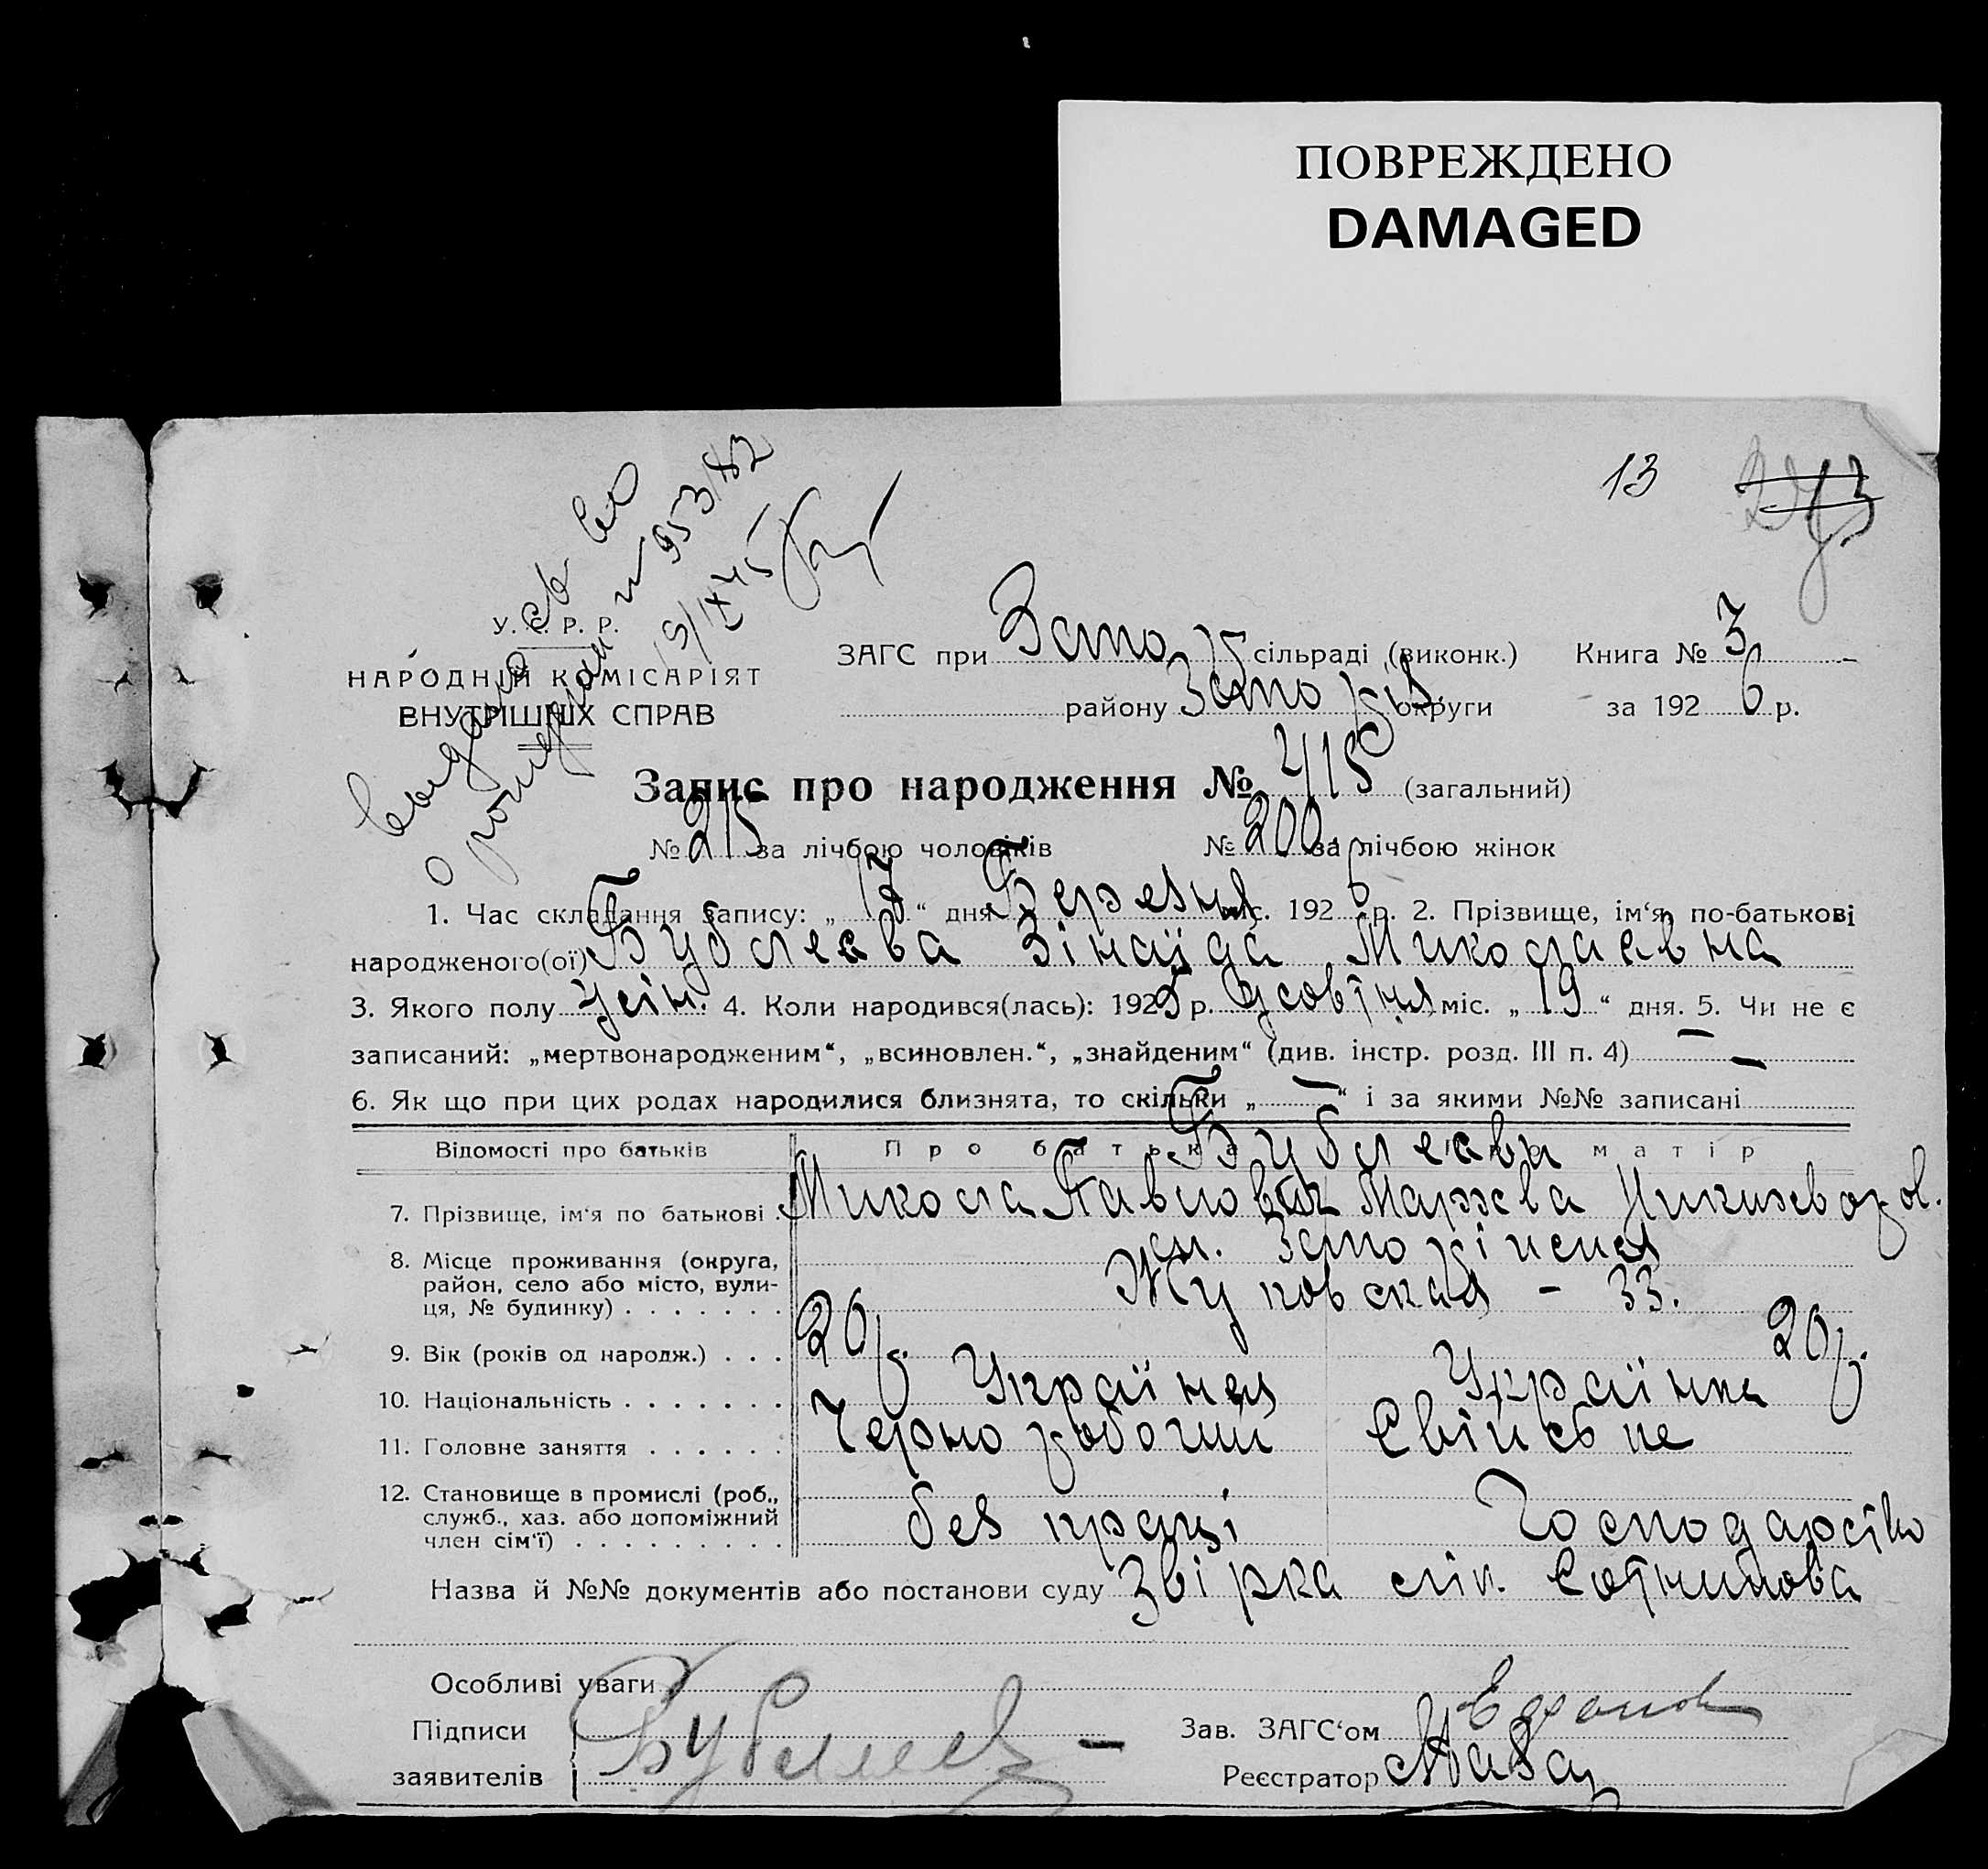 ПОВРЕЖДЕНО
DAMAGED
13
У. С. Р. Р.
НАРОДНІЙ КОМІСАРІЯТ
ВНУТРІШНІХ СПРАВ
ЗАГС при Запо сільраді (виконк.) Книга № 3
району Запоріз округи за 1926 р.
Запис про народження № 415 (загальний)
№ 215 за лічбою чоловіків № 200 за лічбою жінок
1. Час складання запису: „17“ дня Березня міс. 1926 р. 2. Прізвище, ім‘я, по-батькові
народженого(ої) Бублеєва Зінаїда Миколаєвна
3. Якого полу жін. 4. Коли народився(лась): 1925 р. жовтня міс. „19“ дня. 5. Чи не є
записаний: „мертвонародженим“, „всиновлен.“, „знайденим“ (див. інстр. розд. III п. 4) —
6. Як що при цих родах народилися близнята, то скільки „—“ і за якими №№ записані
Відомості про батьків Про батька матір
Бублеєви
7. Прізвище, ім‘я по батькові Микола Павлович Мархва
8. Місце проживання (округа, район, село або місто, вулиця, № будинку) ст. Запоріжжя
Жуковская - 33.
9. Вік (років од народж.) 20 р. 20 р.
10. Національність Українец Українка
11. Головне заняття Чернорабочий Свійське
12. Становище в промислі (роб., служб., хаз. або допоміжний член сім‘ї) без праці Господарство
Назва й №№ документів або постанови суду Звірка Сотникова
Особливі уваги
Підписи Бублеев — Зав. ЗАГС‘ом
заявителів Реєстратор